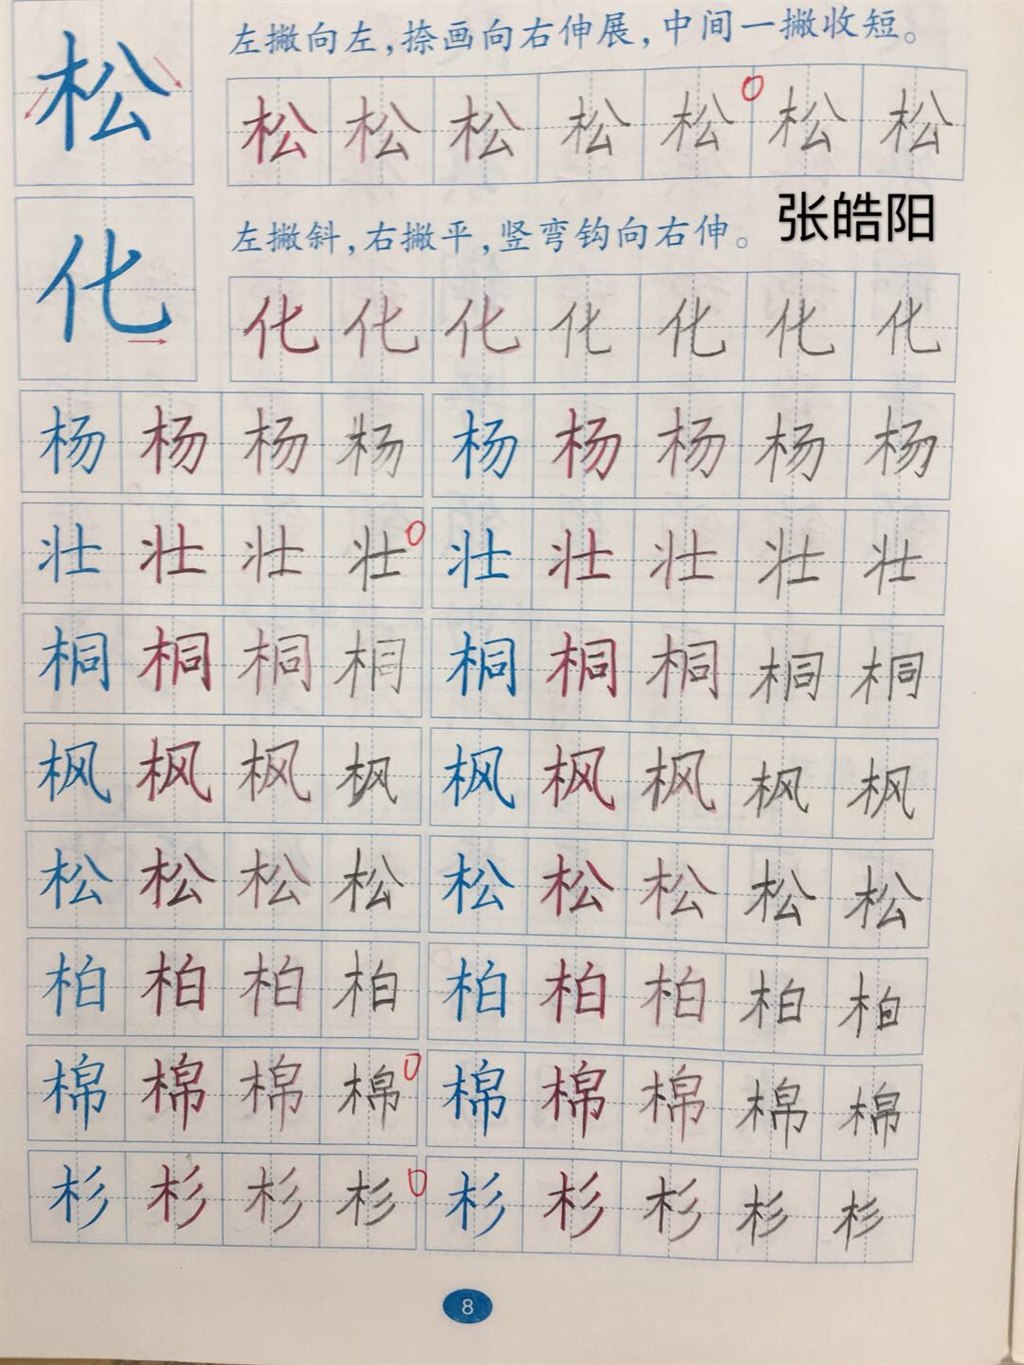 松
左撇向左，捺画向右伸展，中间一撇收短。
松 松 松 松 松 松 松
张皓阳
化
左撇斜，右撇平，竖弯钩向右伸。
化 化 化 化 化 化 化
杨 杨 杨 杨 杨 杨 杨 杨 杨
壮 壮 壮 壮 壮 壮 壮 壮 壮
桐 桐 桐 桐 桐 桐 桐 桐 桐
枫 枫 枫 枫 枫 枫 枫 枫 枫
松 松 松 松 松 松 松 松 松
柏 柏 柏 柏 柏 柏 柏 柏 柏
棉 棉 棉 棉 棉 棉 棉 棉 棉
杉 杉 杉 杉 杉 杉 杉 杉 杉
8